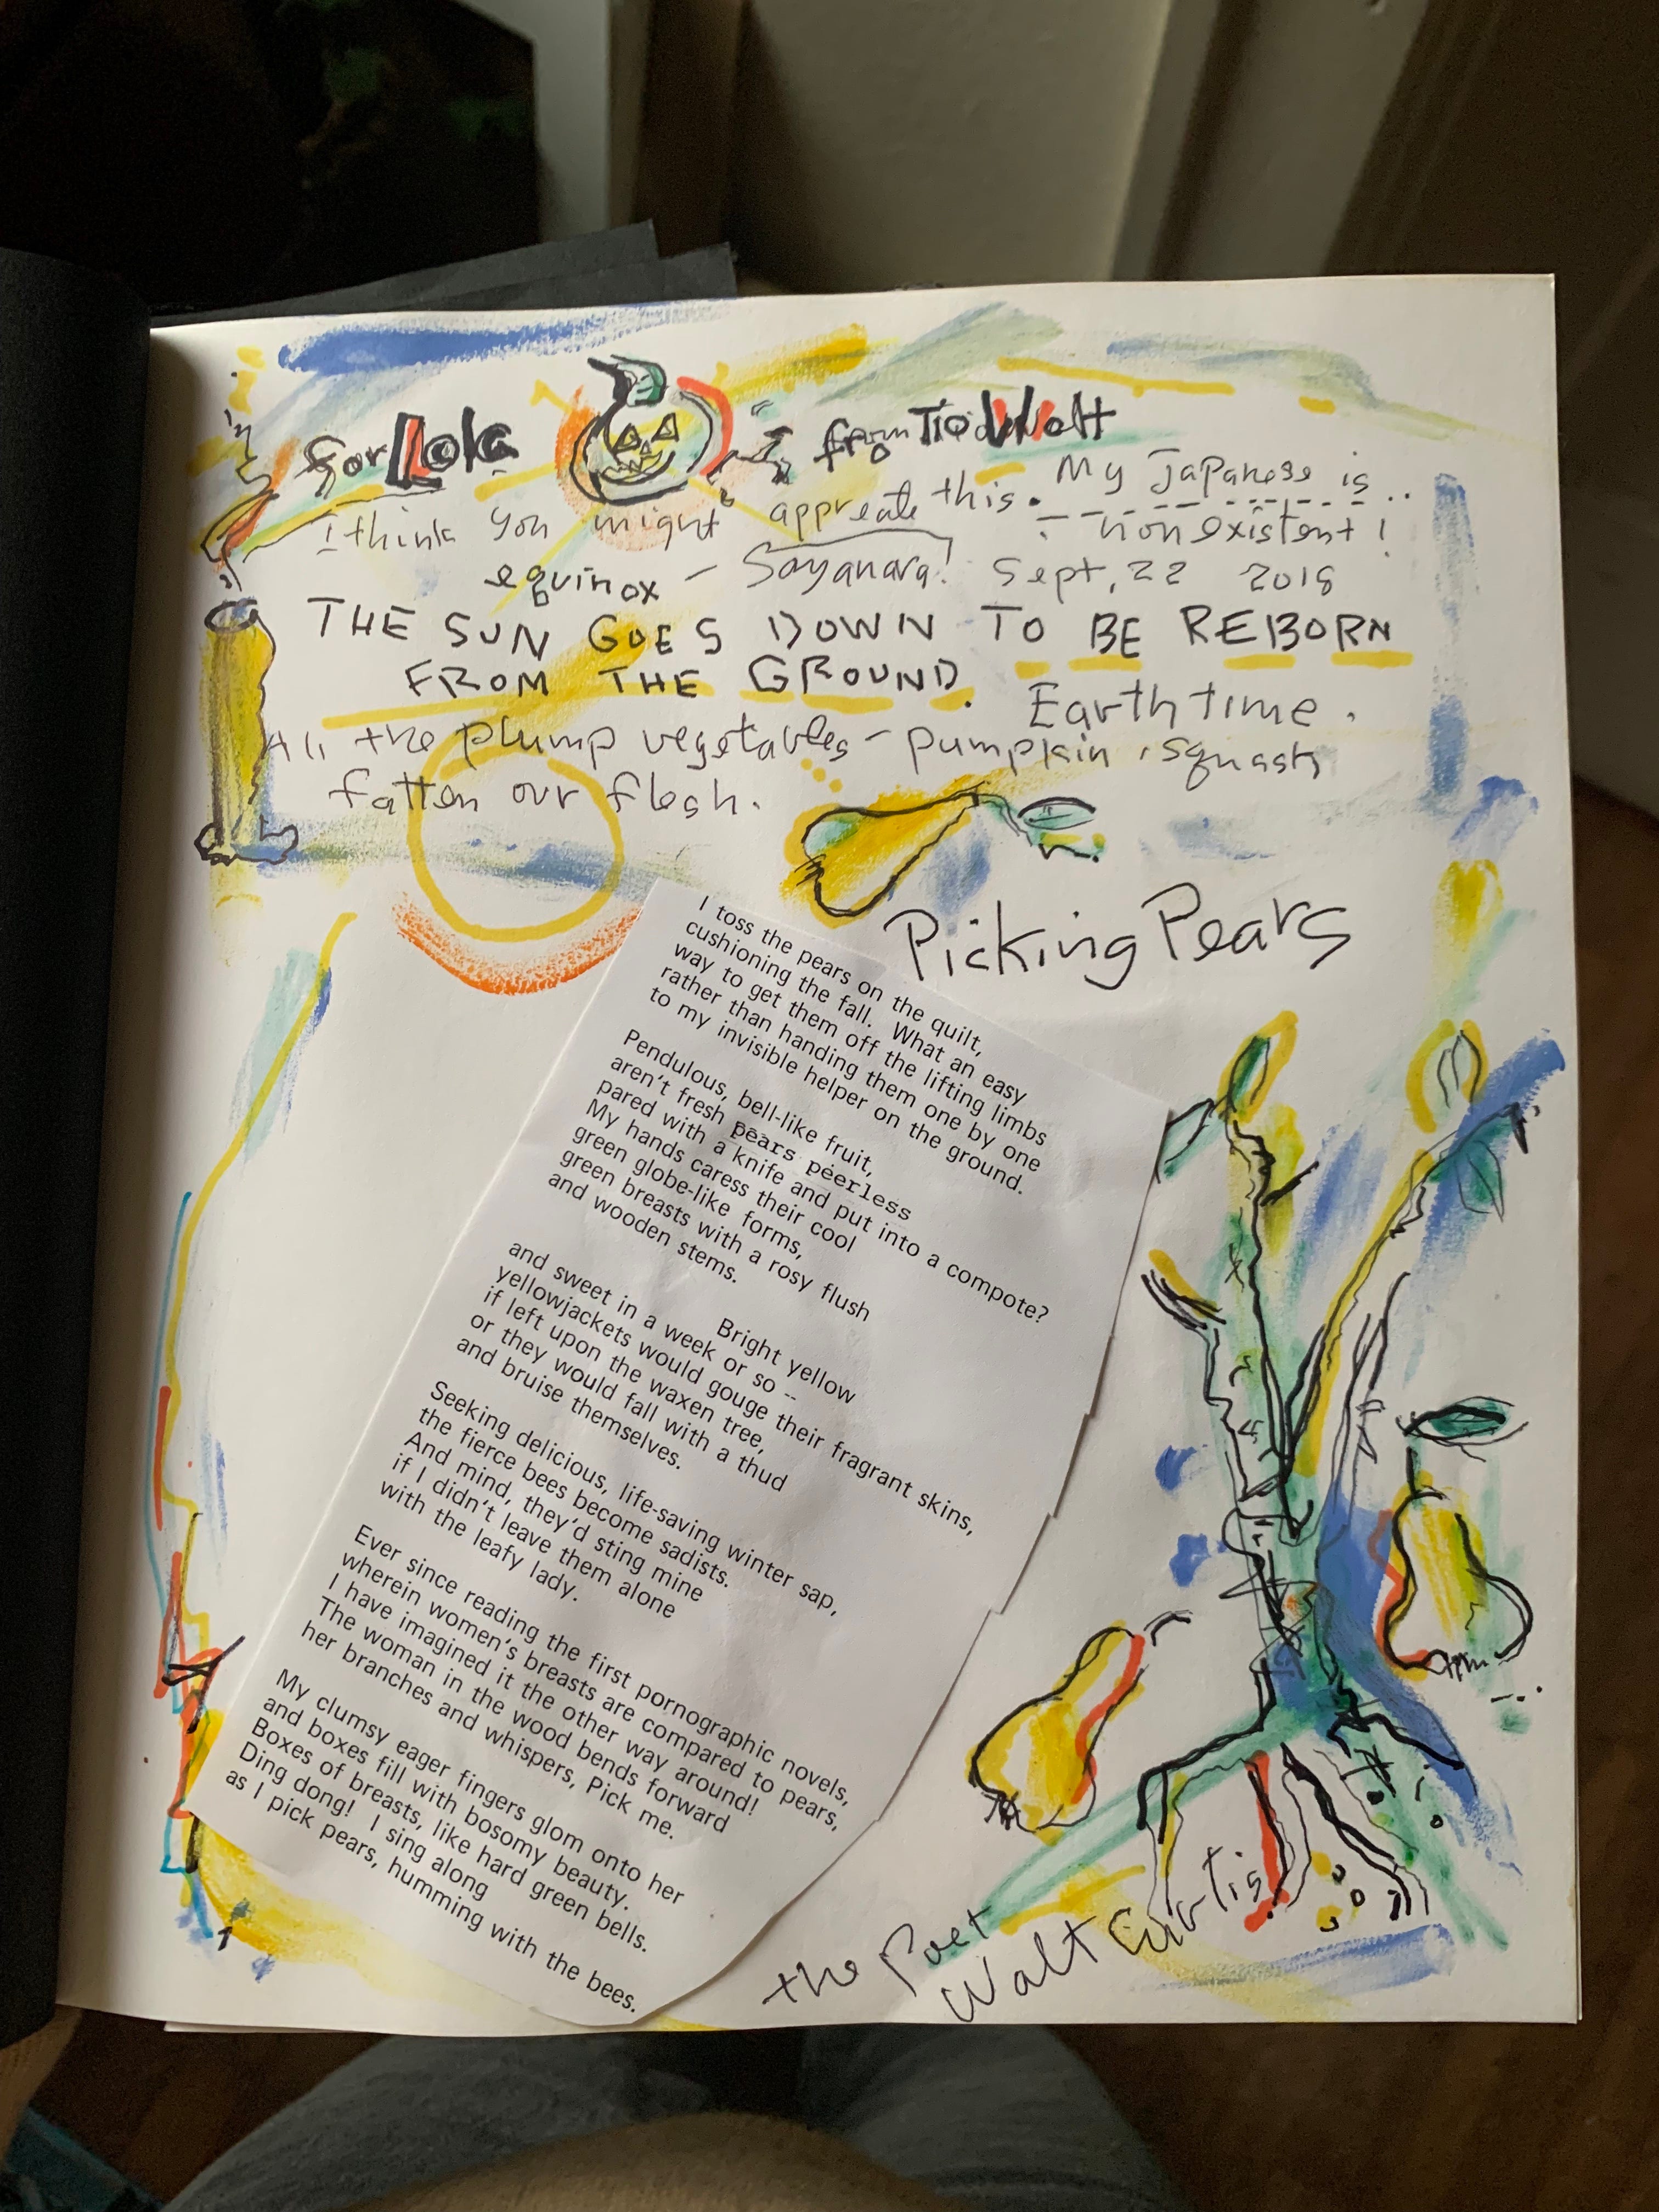 for Lola from Tio Walt
I think you might appreate this. My Japanese is..
non existent!
equinox - Sayanara! Sept, 22 2018
THE SUN GOES DOWN TO BE REBORN
FROM THE GROUND. Earth time.
All the plump vegetables - pumpkin, squash
fatten our flesh.
Picking Pears
I toss the pears on the quilt,
cushioning the fall. What an easy
way to get them off the lifting limbs
rather than handing them one by one
to my invisible helper on the ground.
Pendulous, bell-like fruit,
aren't fresh pears peerless
pared with a knife and put into a compote?
My hands caress their cool
green globe-like forms,
green breasts with a rosy flush
and wooden stems.
Bright yellow
and sweet in a week or so --
yellowjackets would gouge their fragrant skins,
if left upon the waxen tree,
or they would fall with a thud
and bruise themselves.
Seeking delicious, life-saving winter sap,
the fierce bees become sadists.
And mind, they'd sting mine
if I didn't leave them alone
with the leafy lady.
Ever since reading the first pornographic novels,
wherein women's breasts are compared to pears,
I have imagined it the other way around!
The woman in the wood bends forward
her branches and whispers, Pick me.
My clumsy eager fingers glom onto her
and boxes fill with bosomy beauty.
Boxes of breasts, like hard green bells.
Ding dong! I sing along
as I pick pears, humming with the bees.
the Poet
Walt Curtis